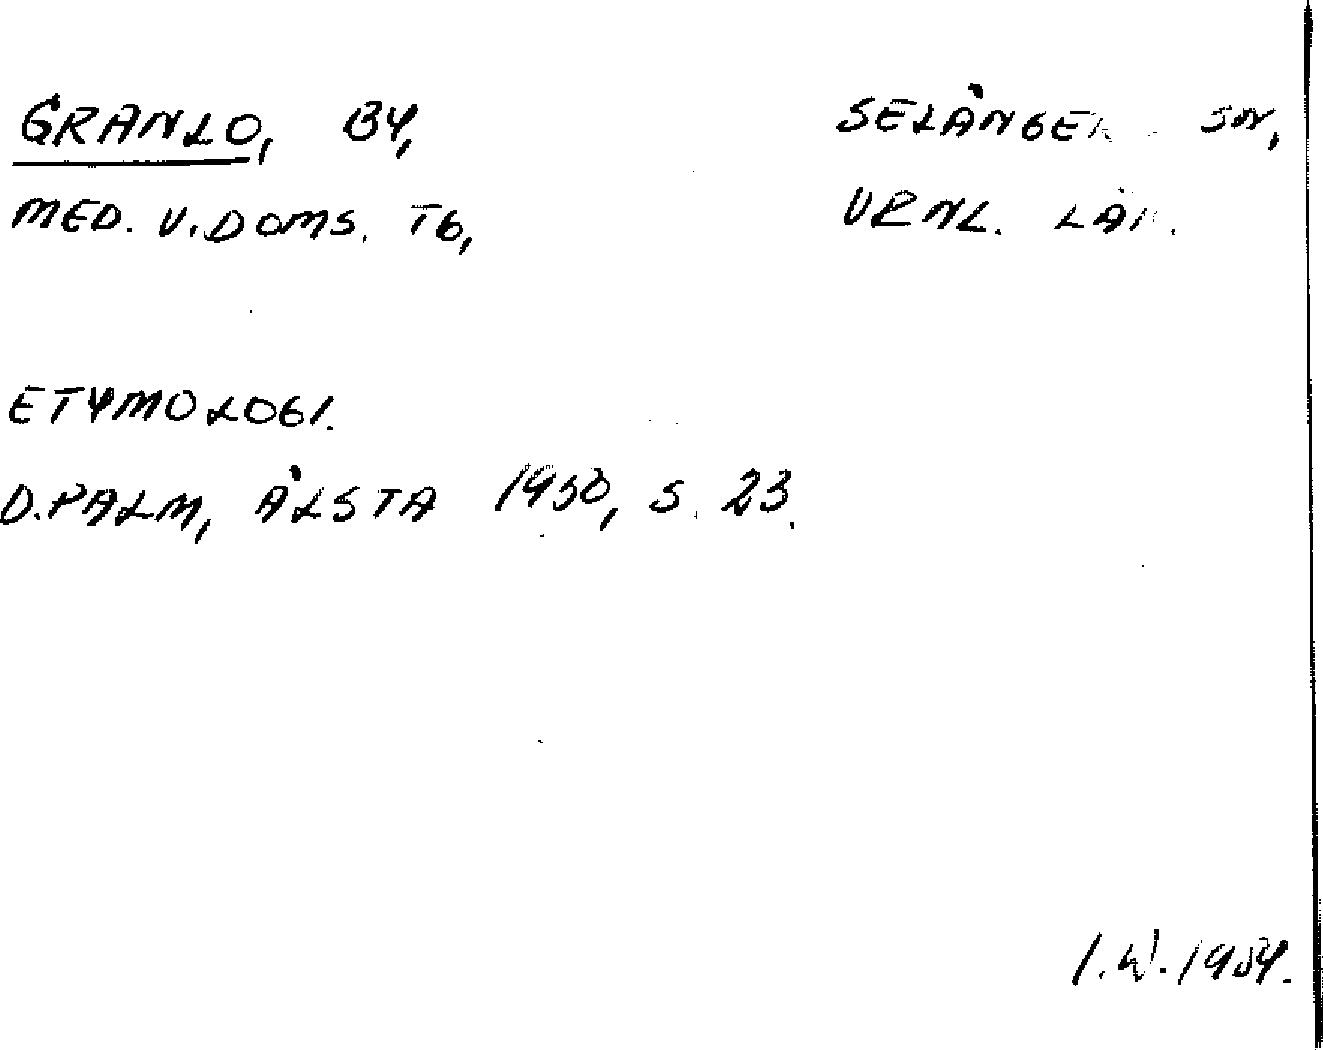 GRANLO, BY, SELÅNGER SN,
MED. V. DOMS. TG, VRNL. LÄN.
ETYMOLOGI.
D. PALM, ÅLSTA 1950, S. 23.
I.W. 1954.